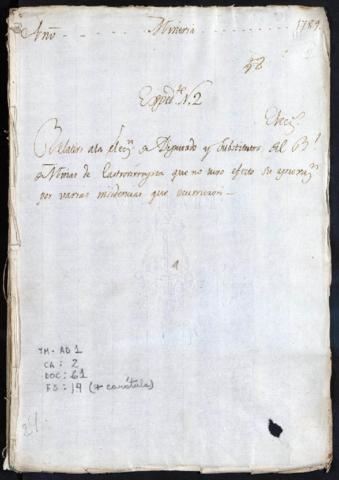 Año Mineria 1789
Exped.te N. 2
Elecc.
Relativo a la elecn. de Diputado y Substitutos del Rl.
de Minas de Castrovirreyna que no tuvo efecto su aprovazn.
por varias insidencias que ocurrieron
TM-AD1
CA: 2
DOC: 61
FS: 19 (+ carátula)